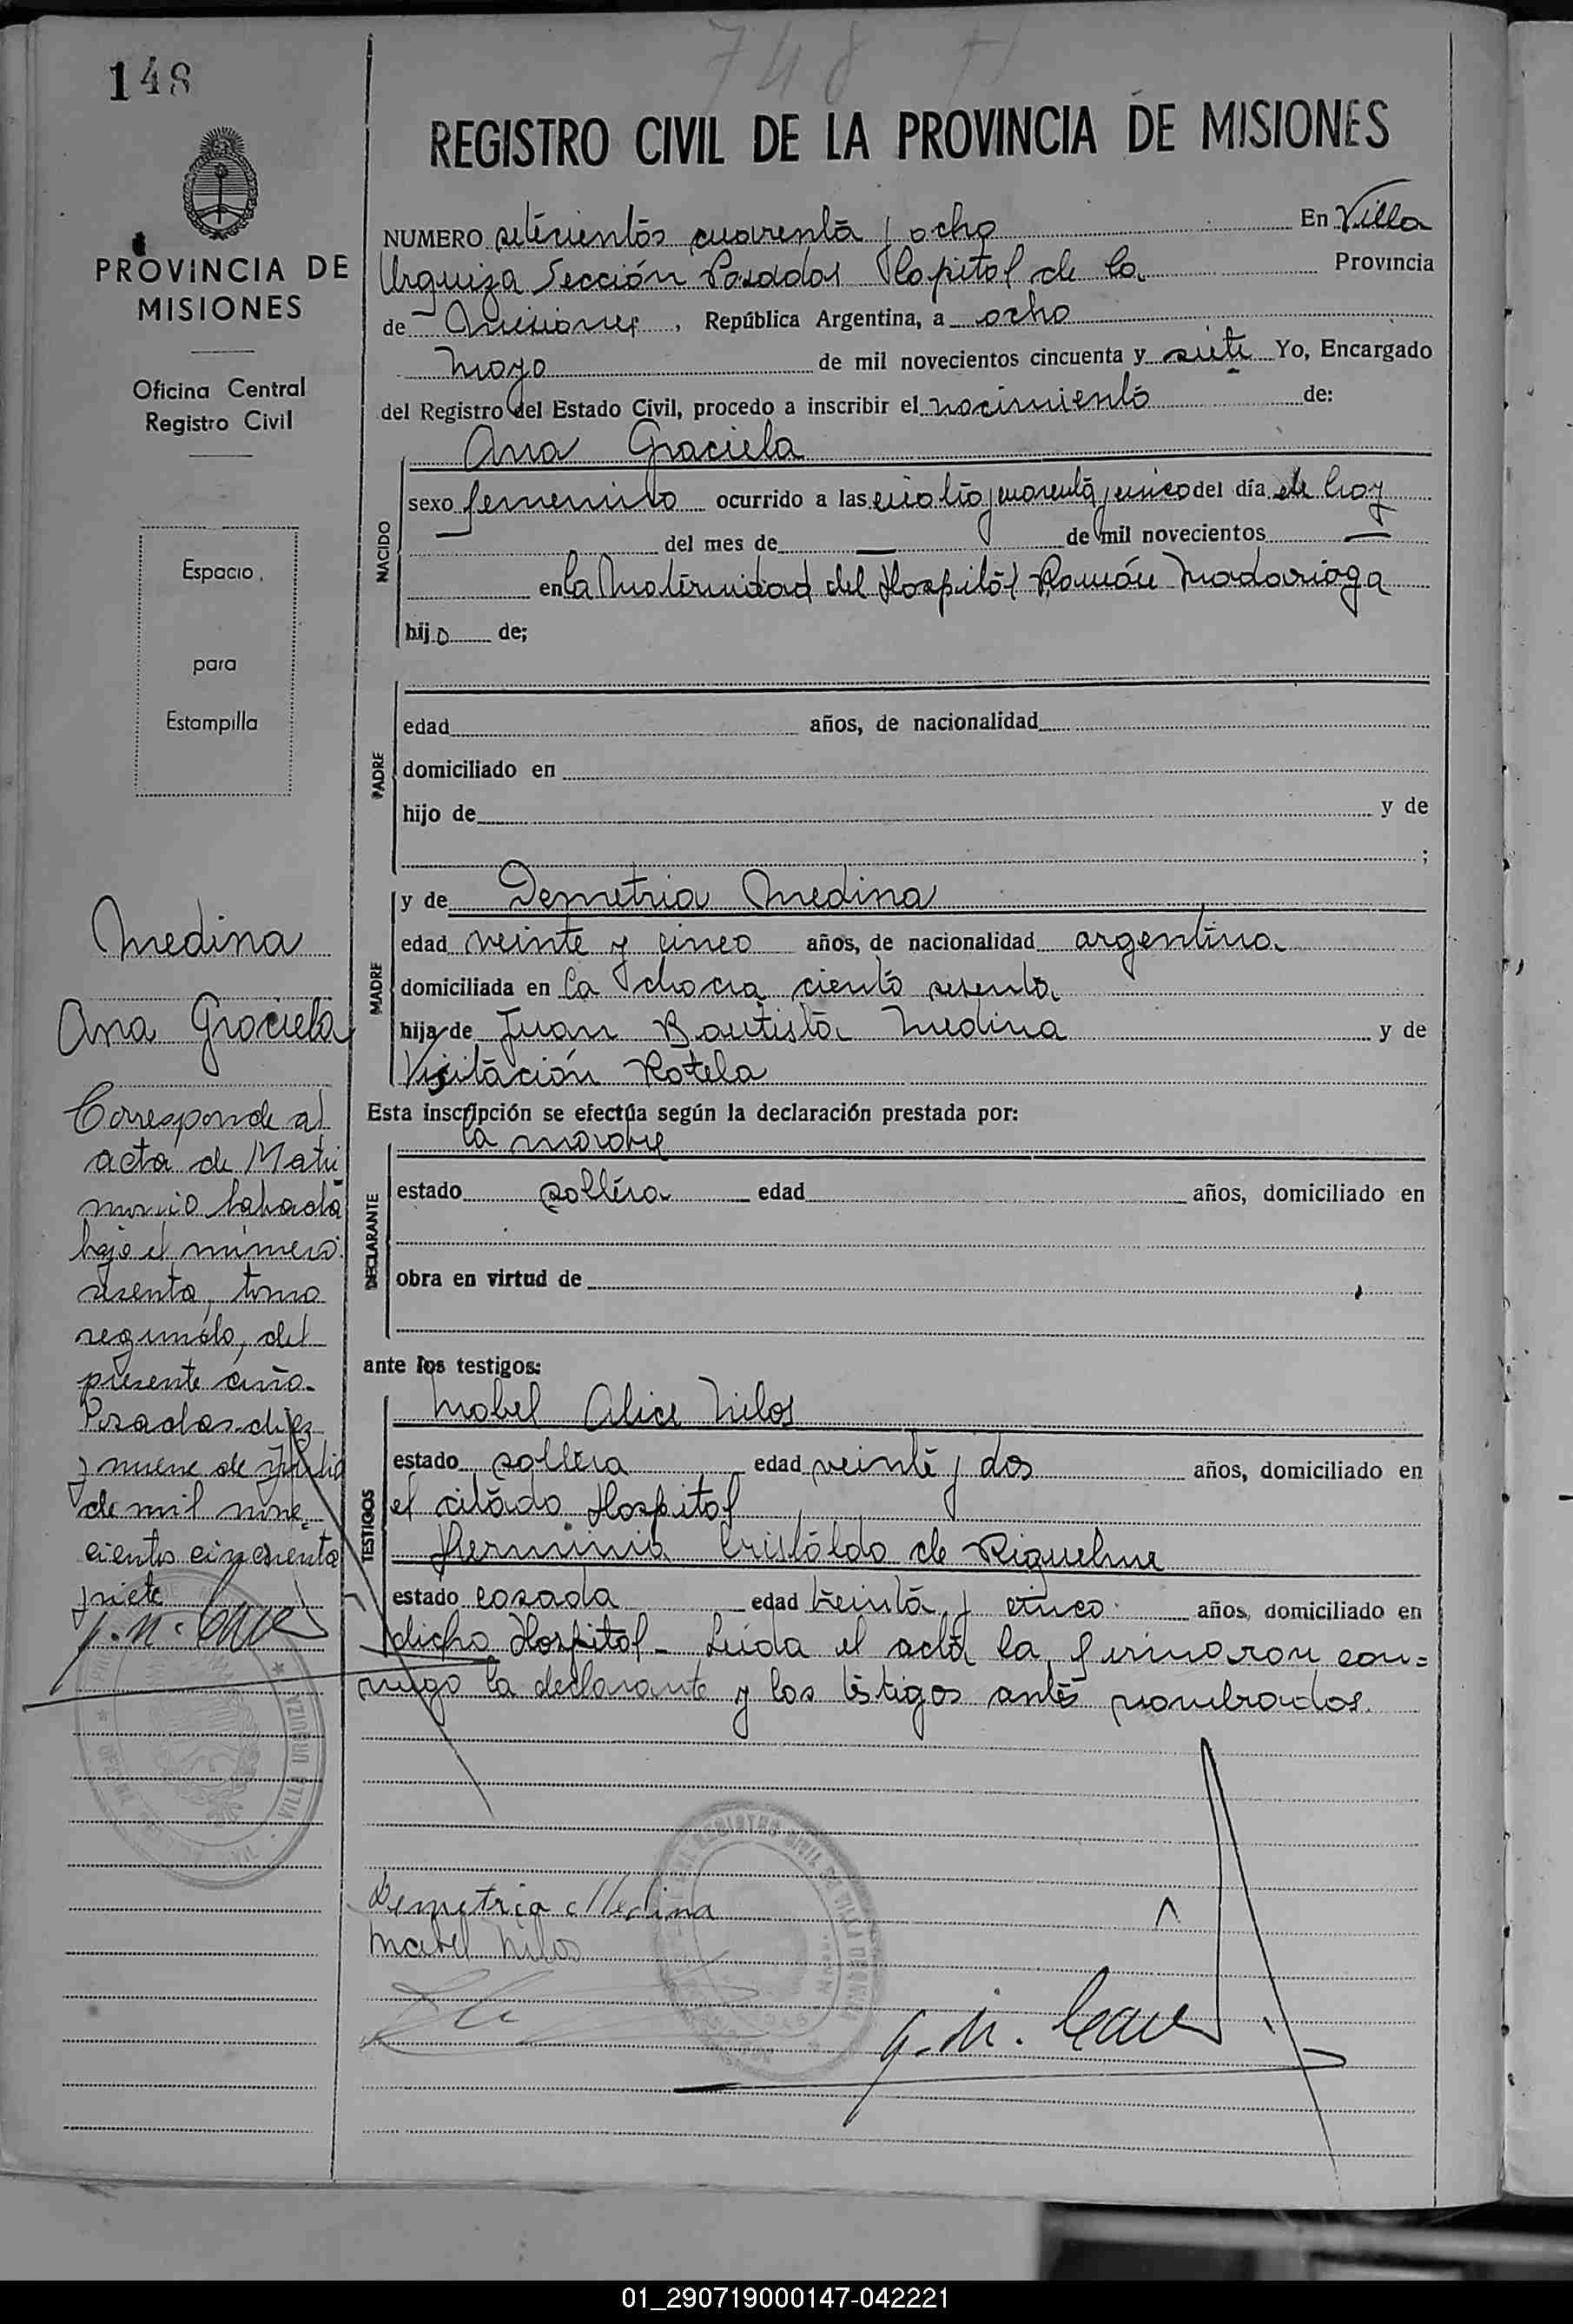 148
748 H
PROVINCIA DE
MISIONES
Oficina Central
Registro Civil
Espacio
para
Estampilla
Medina
Ana Graciela
Corresponde al
acta de Matri
monio labrada
bajo el número
sesenta, tomo
segundo, del
presente año.
Posadas, diez
y nueve de Julio
de mil nove=
cientos cincuenta
y siete
REGISTRO CIVIL DE LA PROVINCIA DE MISIONES
NUMERO setecientos cuarenta y ocho En Villa
Urquiza Sección Posadas Capital de la Provincia
de Misiones, República Argentina, a ocho
Mayo de mil novecientos cincuenta y siete Yo, Encargado
del Registro del Estado Civil, procedo a inscribir el nacimiento de:
Ana Graciela
NACIDO
sexo femenino ocurrido a las cuatro y cuarenta y cinco del día de hoy
del mes de — de mil novecientos —
en la Maternidad del Hospital Ramón Madariaga
hijo de;
PADRE
edad años, de nacionalidad
domiciliado en
hijo de y de
;
y de Demetria Medina
MADRE
edad veinte y cinco años, de nacionalidad argentina
domiciliada en la chacra ciento sesenta
hija de Juan Bautista Medina y de
Visitación Rotela
Esta inscripción se efectúa según la declaración prestada por:
la madre
DECLARANTE
estado soltera edad años, domiciliado en
obra en virtud de
ante los testigos:
Mabel Alice Milos
TESTIGOS
estado soltera edad veinte y dos años, domiciliado en
el citado Hospital
Herminia Cristaldo de Riquelme
estado casada edad treinta y cinco años, domiciliado en
dicho Hospital - Leida el acta la firmaron con=
migo la declarante y los testigos antes nombrados.
Demetria Medina
Mabel Milos
01_290719000147-042221